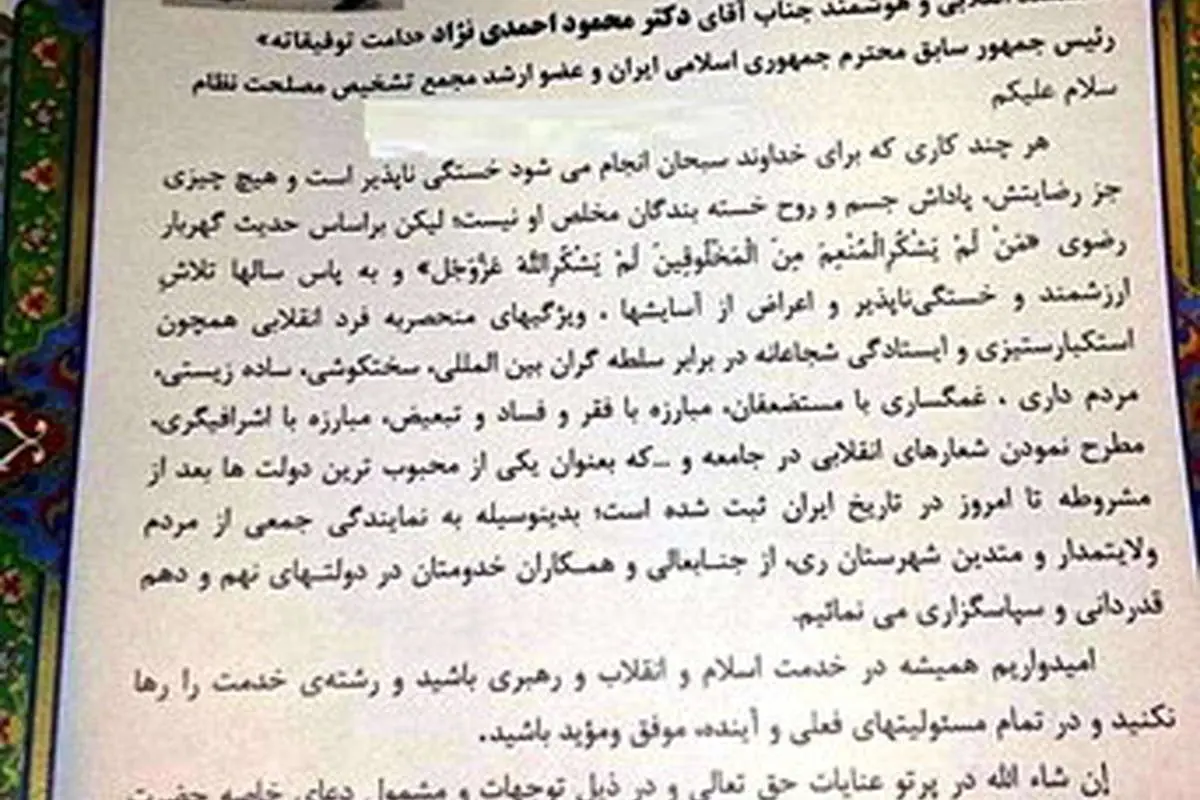 انقلابی و هوشمند جناب آقای دکتر محمود احمدی نژاد «دامت توفیقاته»
رئیس جمهور سابق محترم جمهوری اسلامی ایران و عضو ارشد مجمع تشخیص مصلحت نظام
سلام علیکم
هر چند کاری که برای خداوند سبحان انجام می شود خستگی ناپذیر است و هیچ چیزی
جز رضایتش، پاداش جسم و روح خسته بندگان مخلص او نیست؛ لیکن براساس حدیث گهربار
رضوی «مَنْ لَمْ یَشْکُرِالْمُنْعِمَ مِنَ الْمَخْلُوقِینَ لَمْ یَشْکُرِاللهَ عَزَّوَجَل» و به پاس سالها تلاشِ
ارزشمند و خستگی‌ناپذیر و اعراض از آسایشها ، ویژگیهای منحصربه فرد انقلابی همچون
استکبارستیزی و ایستادگی شجاعانه در برابر سلطه گران بین المللی، سختکوشی، ساده زیستی،
مردم داری ، غمگساری با مستضعفان، مبارزه با فقر و فساد و تبعیض، مبارزه با اشرافیگری،
مطرح نمودن شعارهای انقلابی در جامعه و ...که بعنوان یکی از محبوب ترین دولت ها بعد از
مشروطه تا امروز در تاریخ ایران ثبت شده است؛ بدینوسیله به نمایندگی جمعی از مردم
ولایتمدار و متدین شهرستان ری، از جنابعالی و همکاران خدومتان در دولتهای نهم و دهم
قدردانی و سپاسگزاری می نمائیم.
امیدواریم همیشه در خدمت اسلام و انقلاب و رهبری باشید و رشته‌ی خدمت را رها
نکنید و در تمام مسئولیتهای فعلی و آینده، موفق ومؤید باشید.
إن شاء الله در پرتو عنایات حق تعالی و در ذیل توجهات و مشمول دعای خاصه حضرت